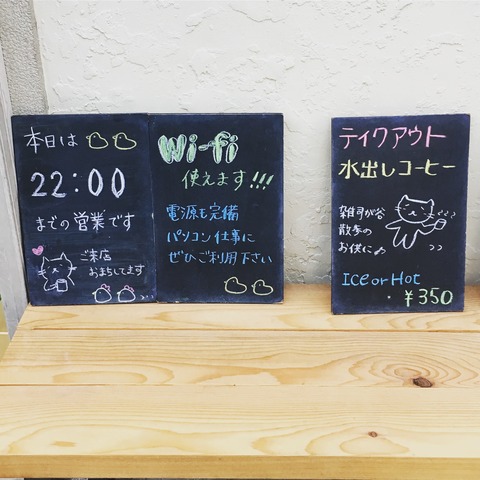 本日は
22:00
までの営業です
ご来店
おまちしてます
Wi-fi
使えます!!!
電源も完備
パソコン仕事に
ぜひご利用下さい
テイクアウト
水出しコーヒー
雑司が谷
散歩の
お供に♪
ICE or Hot
¥350